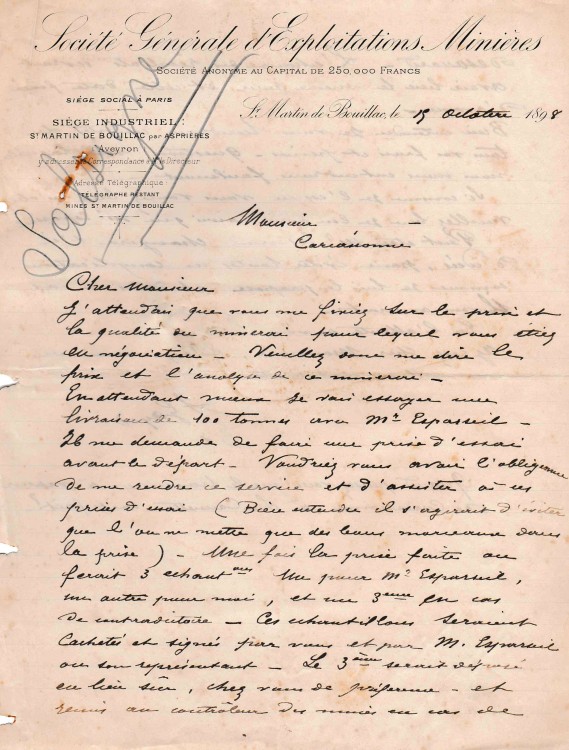 Société Générale d'Exploitations Minières
Société Anonyme au Capital de 250,000 Francs
SIÈGE SOCIAL À PARIS
SIÈGE INDUSTRIEL:
St MARTIN DE BOUILLAC par ASPRIÈRES
Aveyron
y adresser la Correspondance à M. le Directeur
Adresse Télégraphique
TÉLÉGRAPHE RESTANT
MINES St MARTIN DE BOUILLAC
St Martin de Bouillac, le 15 Octobre 1898
Monsieur
Carcassonne
Cher Monsieur
J'attendais que vous me fixiez sur le prix et
la qualité du minerai pour lequel vous étiez
en négociation - Veuillez donc me dire le
prix et l'analyse de ce minerai -
En attendant mieux je vais essayer une
livraison de 100 tonnes avec Mr Esparseil -
Il me demande de faire une prise d'essai
avant le départ - Voudriez vous avoir l'obligeance
de me rendre ce service et d'assister à ces
prises d'essai ( Bien entendu il s'agirait d'éviter
que l'on ne mette que des bons morceaux dans
la prise ) - Une fois la prise faite on
ferait 3 échantons Un pour Mr Esparseil,
un autre pour moi, et un 3ème en cas
de contradictoire - Ces échantillons seraient
cachetés et signés par vous et par M. Esparseil
ou son représentant - Le 3ème serait déposé
en lieu sûr, chez vous de préférence - et
remis au contrôleur des mines en cas de